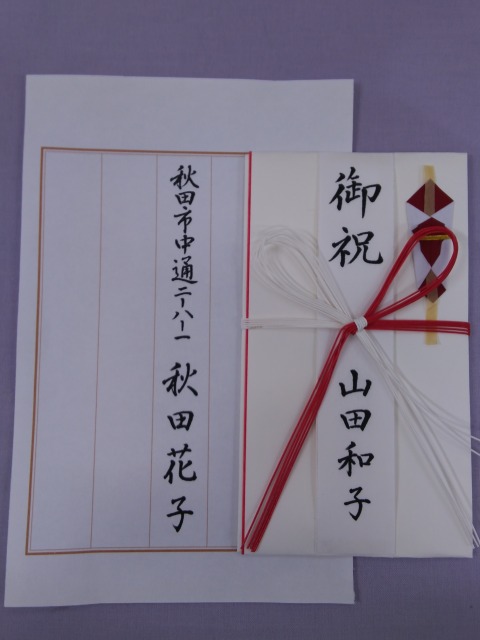 御祝
山田和子
秋田市中通二ー八ー一
秋田花子